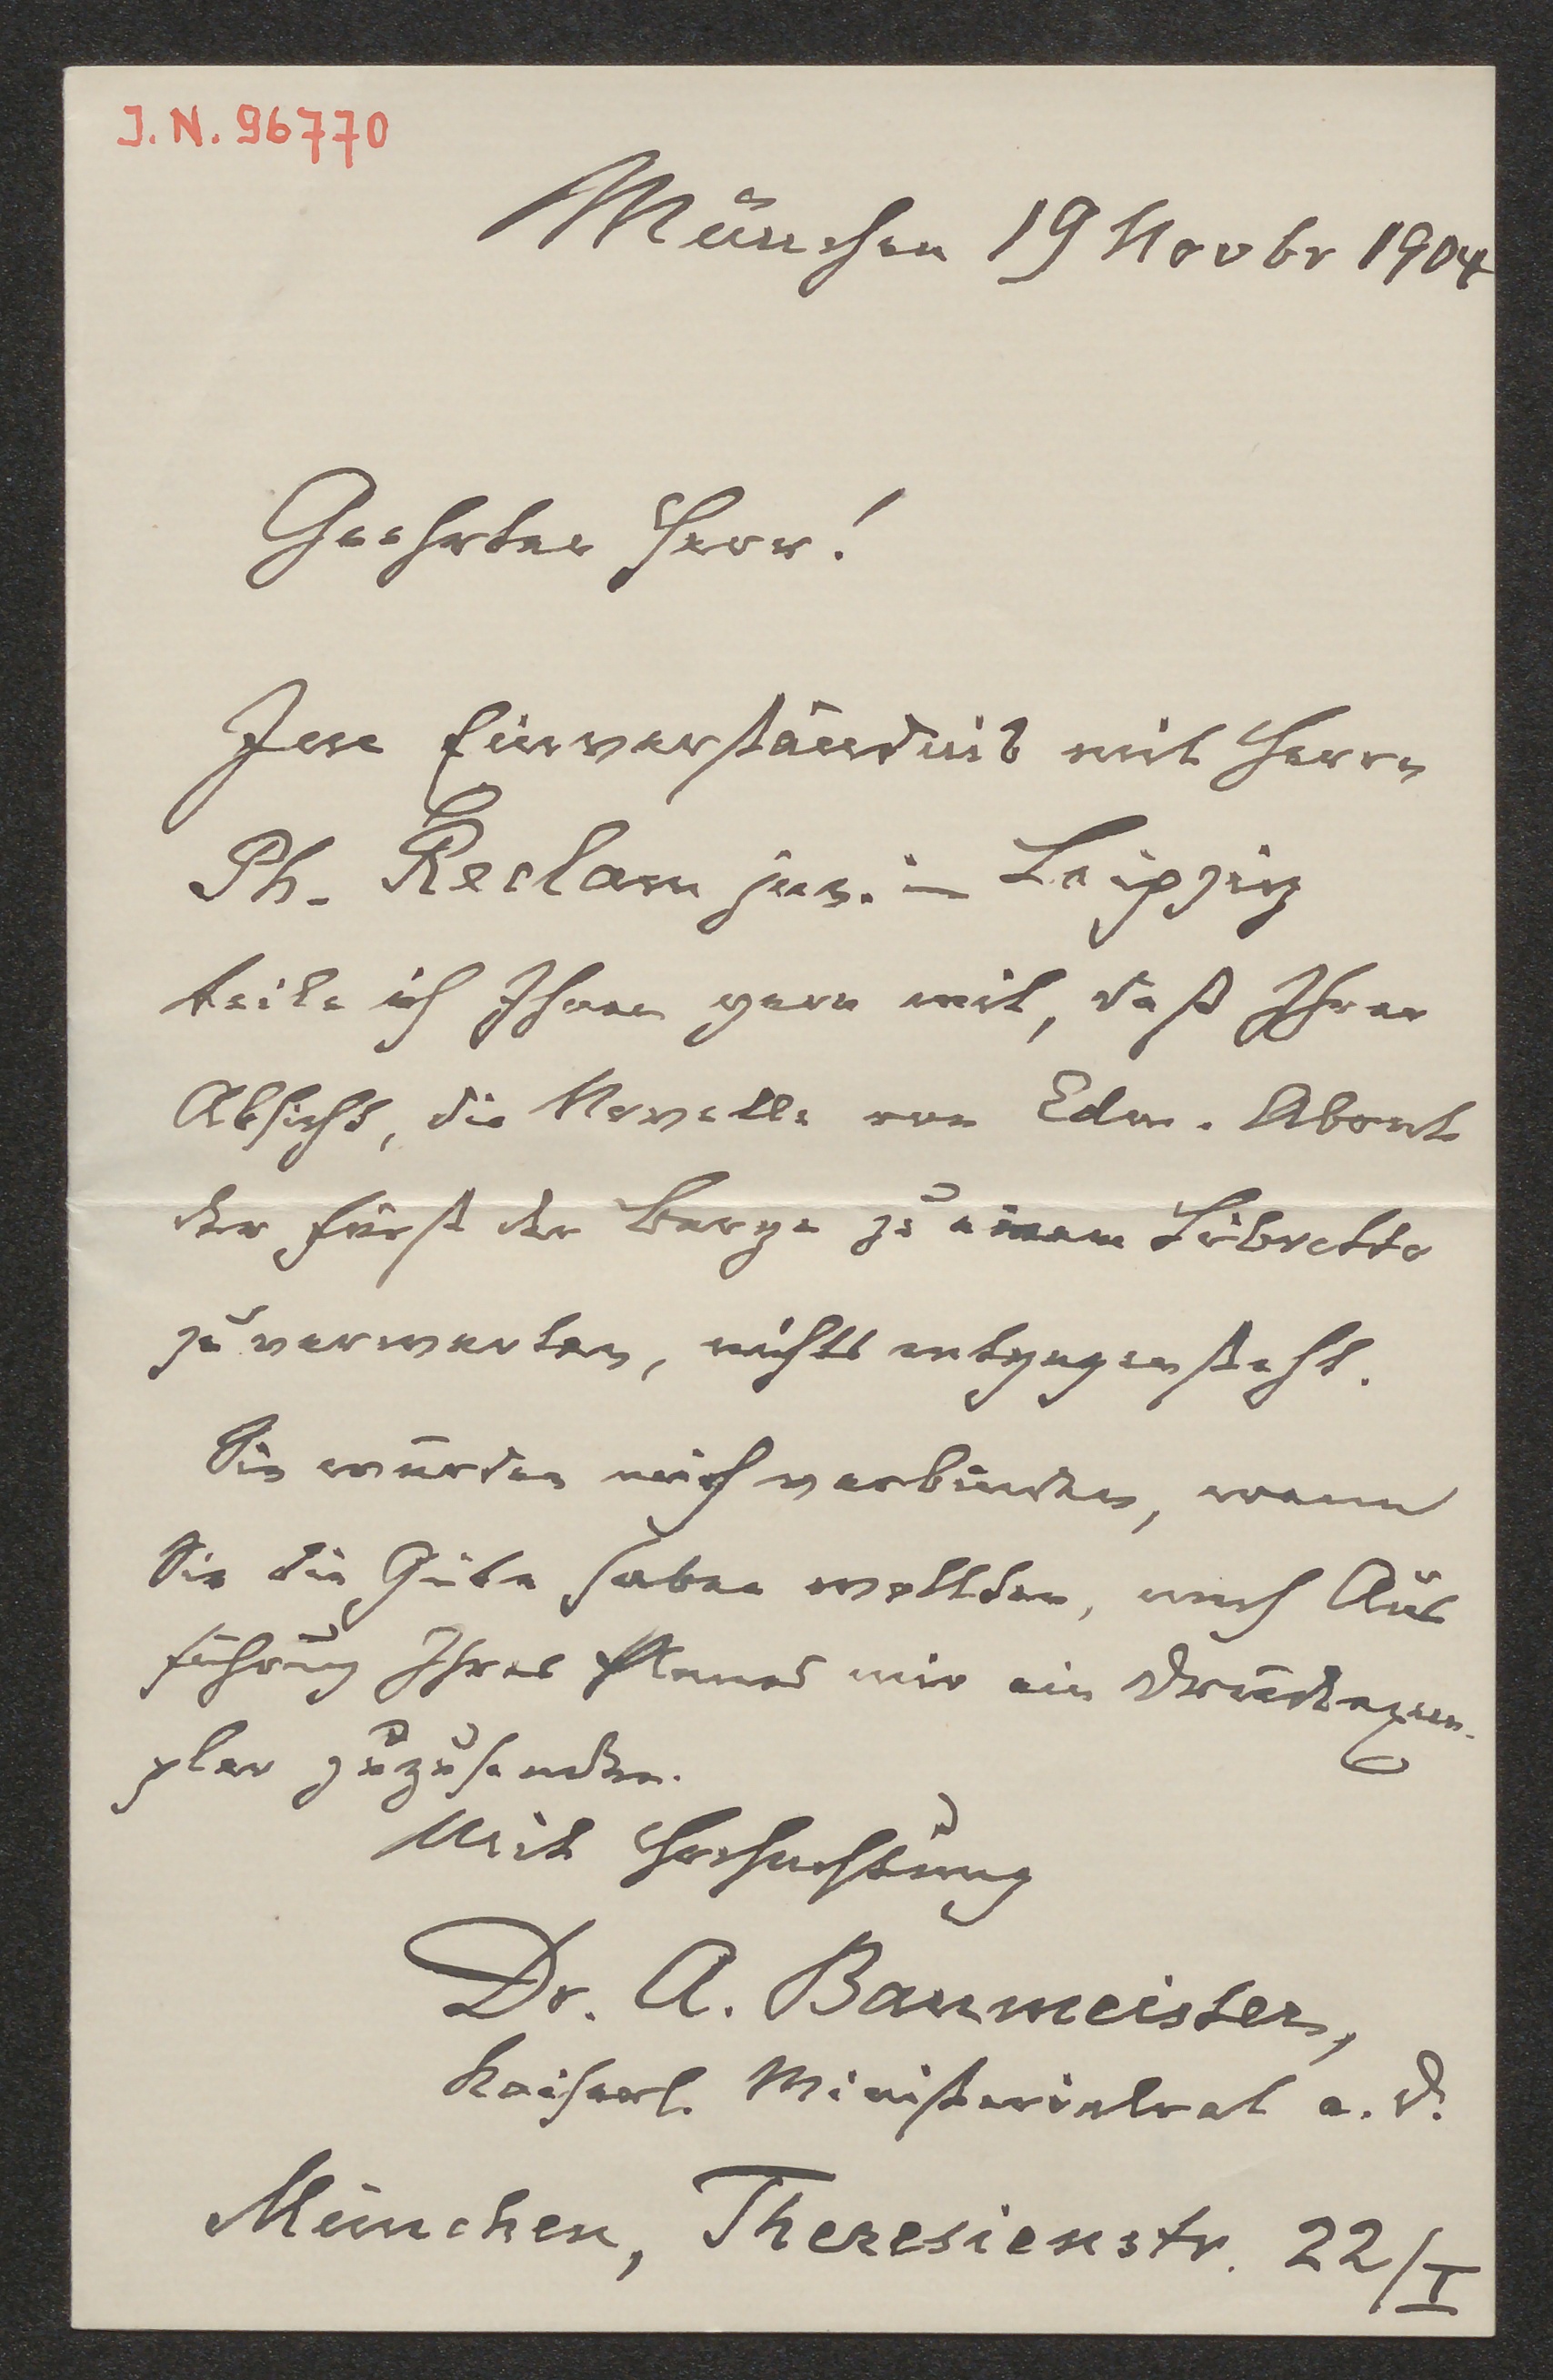 J. N. 96770
München 19 Novbr 1904
Geehrter Herr!
Im Einverständnis mit Herrn
Ph. Reclam jun. in Leipzig
teile ich Ihnen gern mit, daß Ihrer
Absicht, die Novelle von Edm. About
der Fürst der Berge zu einem Libretto
zu verwerten, nichts entgegensteht.
Sie würden mich verbinden, wenn
Sie die Güte haben wollten, nach Aus
führung Ihres Planes mir ein Druckexem-
plar zuzusenden.
Mit Hochachtung
Dr. A. Baumeister,
Kaiserl. Ministerialrat a. D.
München, Theresienstr. 22/I